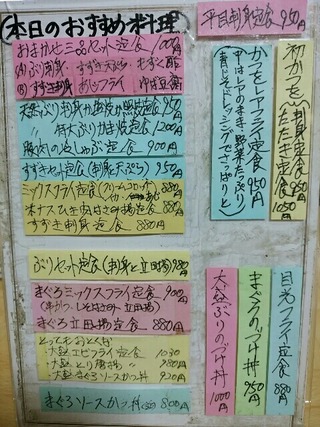 本日のおすすめ料理
平目刺身定食 950円
おまかせ三品セット定食 1000円
Ⓐぶり刺身 すずき天ぷら もずく酢
Ⓑすずき刺身 あじフライ ゆば豆腐
天然ぶり刺身か
〃 特大ぶりかま焼定食 1200円
豚肉の冷しゃぶ定食 900円
すずきセット定食(刺身と天ぷら) 950円
ミックスフライ定食 880円
米ナスひき肉はさみ揚定食 880円
すずき刺身定食 880円
かつをレアフライ定食 950円
(中はレアのまま、野菜たっぷり
青じそドレッシングでさっぱりと)
初かつを
刺身定食 950円
たたき定食 950円
ぶりセット定食(刺身と立田揚) 980円
まぐろミックスフライ定食 900円
(串かつ、しそはさみ、立田揚)
まぐろ立田揚定食 880円
とってもおとくな
・大盛エビフライ定食 1030
・大盛とり唐揚〃 980円
・大盛まぐろソースかつ丼 920円
まぐろソースかつ丼 800円
大盛ぶりのづけ丼 1000円
まぐろのづけ丼 950円
目光フライ定食 880円